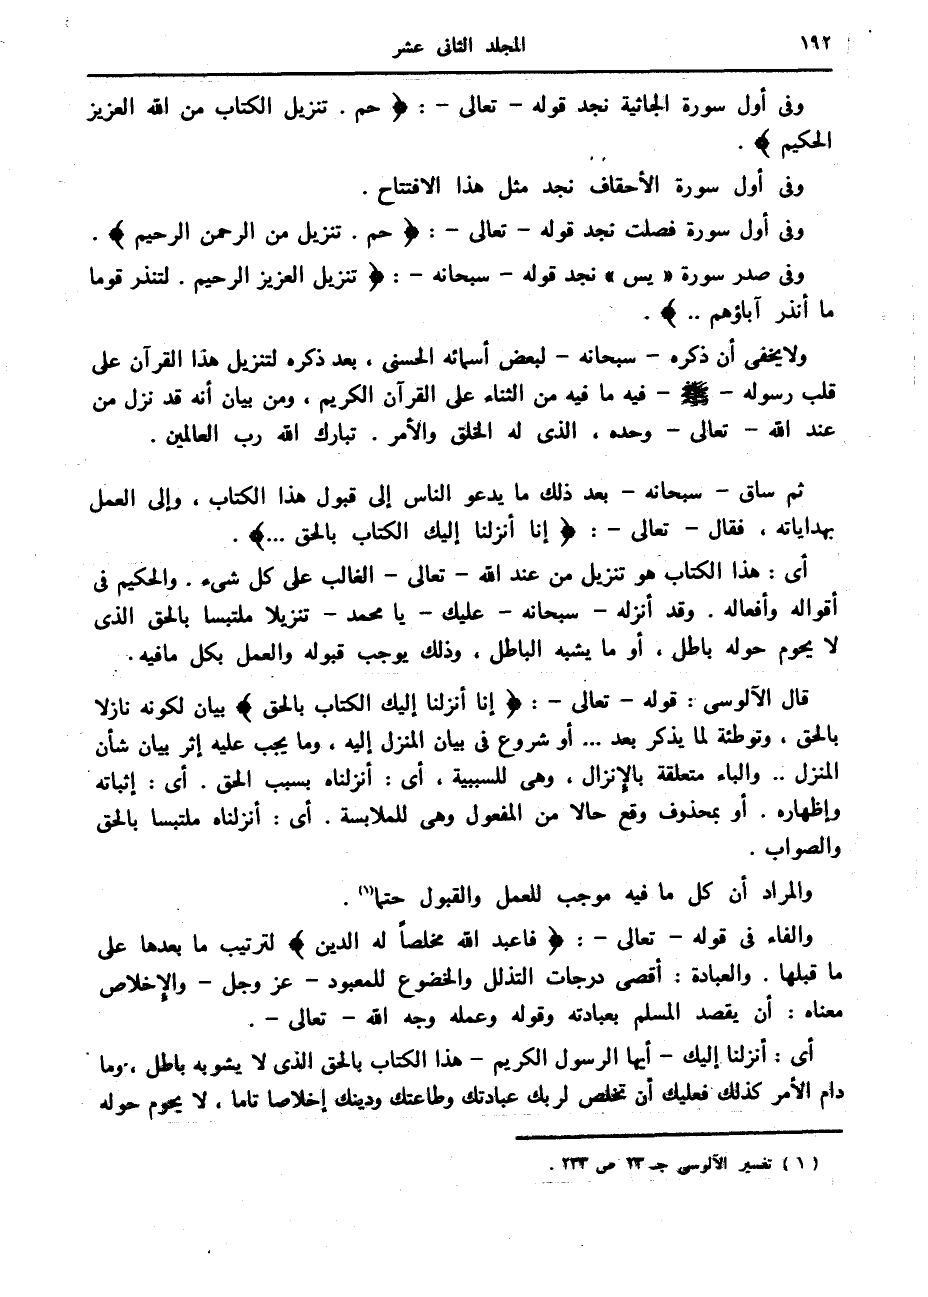 ١٩٢
المجلد الثانى عشر
وفى أول سورة الجاثية نجد قوله - تعالى - : ﴿ حم . تنزيل الكتاب من الله العزيز
الحكيم ﴾ .
وفى أول سورة الأحقاف نجد مثل هذا الافتتاح .
وفى أول سورة فصلت نجد قوله - تعالى - : ﴿ حم . تنزيل من الرحمن الرحيم ﴾ .
وفى صدر سورة « يس » نجد قوله - سبحانه - : ﴿ تنزيل العزيز الرحيم . لتنذر قوما
ما أنذر آباؤهم .. ﴾ .
ولايخفى أن ذكره - سبحانه - لبعض أسمائه الحسنى ، بعد ذكره لتنزيل هذا القرآن على
قلب رسوله - ﷺ - فيه ما فيه من الثناء على القرآن الكريم ، ومن بيان أنه قد نزل من
عند الله - تعالى - وحده ، الذى له الخلق والأمر . تبارك الله رب العالمين .
ثم ساق - سبحانه - بعد ذلك ما يدعو الناس إلى قبول هذا الكتاب ، وإلى العمل
بهداياته ، فقال - تعالى - : ﴿ إنا أنزلنا إليك الكتاب بالحق ...﴾ .
أى : هذا الكتاب هو تنزيل من عند الله - تعالى - الغالب على كل شىء . والحكيم فى
أقواله وأفعاله . وقد أنزله - سبحانه - عليك - يا محمد - تنزيلا ملتبسا بالحق الذى
لا يحوم حوله باطل ، أو ما يشبه الباطل ، وذلك يوجب قبوله والعمل بكل مافيه .
قال الآلوسى : قوله - تعالى - : ﴿ إنا أنزلنا إليك الكتاب بالحق ﴾ بيان لكونه نازلا
بالحق ، وتوطئة لما يذكر بعد ... أو شروع فى بيان المنزل إليه ، وما يجب عليه إثر بيان شأن
المنزل .. والباء متعلقة بالإنزال ، وهى للسببية ، أى : أنزلناه بسبب الحق . أى : إثباته
وإظهاره . أو بمحذوف وقع حالا من المفعول وهى للملابسة . أى : أنزلناه ملتبسا بالحق
والصواب .
والمراد أن كل ما فيه موجب للعمل والقبول حتما(١) .
والفاء فى قوله - تعالى - : ﴿ فاعبد الله مخلصاً له الدين ﴾ لترتيب ما بعدها على
ما قبلها . والعبادة : أقصى درجات التذلل والخضوع للمعبود - عز وجل - والإخلاص
معناه : أن يقصد المسلم بعبادته وقوله وعمله وجه الله - تعالى - .
أى : أنزلنا إليك - أيها الرسول الكريم - هذا الكتاب بالحق الذى لا يشوبه باطل ، وما
دام الأمر كذلك فعليك أن تخلص لربك عبادتك وطاعتك ودينك إخلاصا تاما ، لا يحوم حوله
( ١ ) تفسير الآلوسى جـ ٢٣ ص ٢٣٣ .